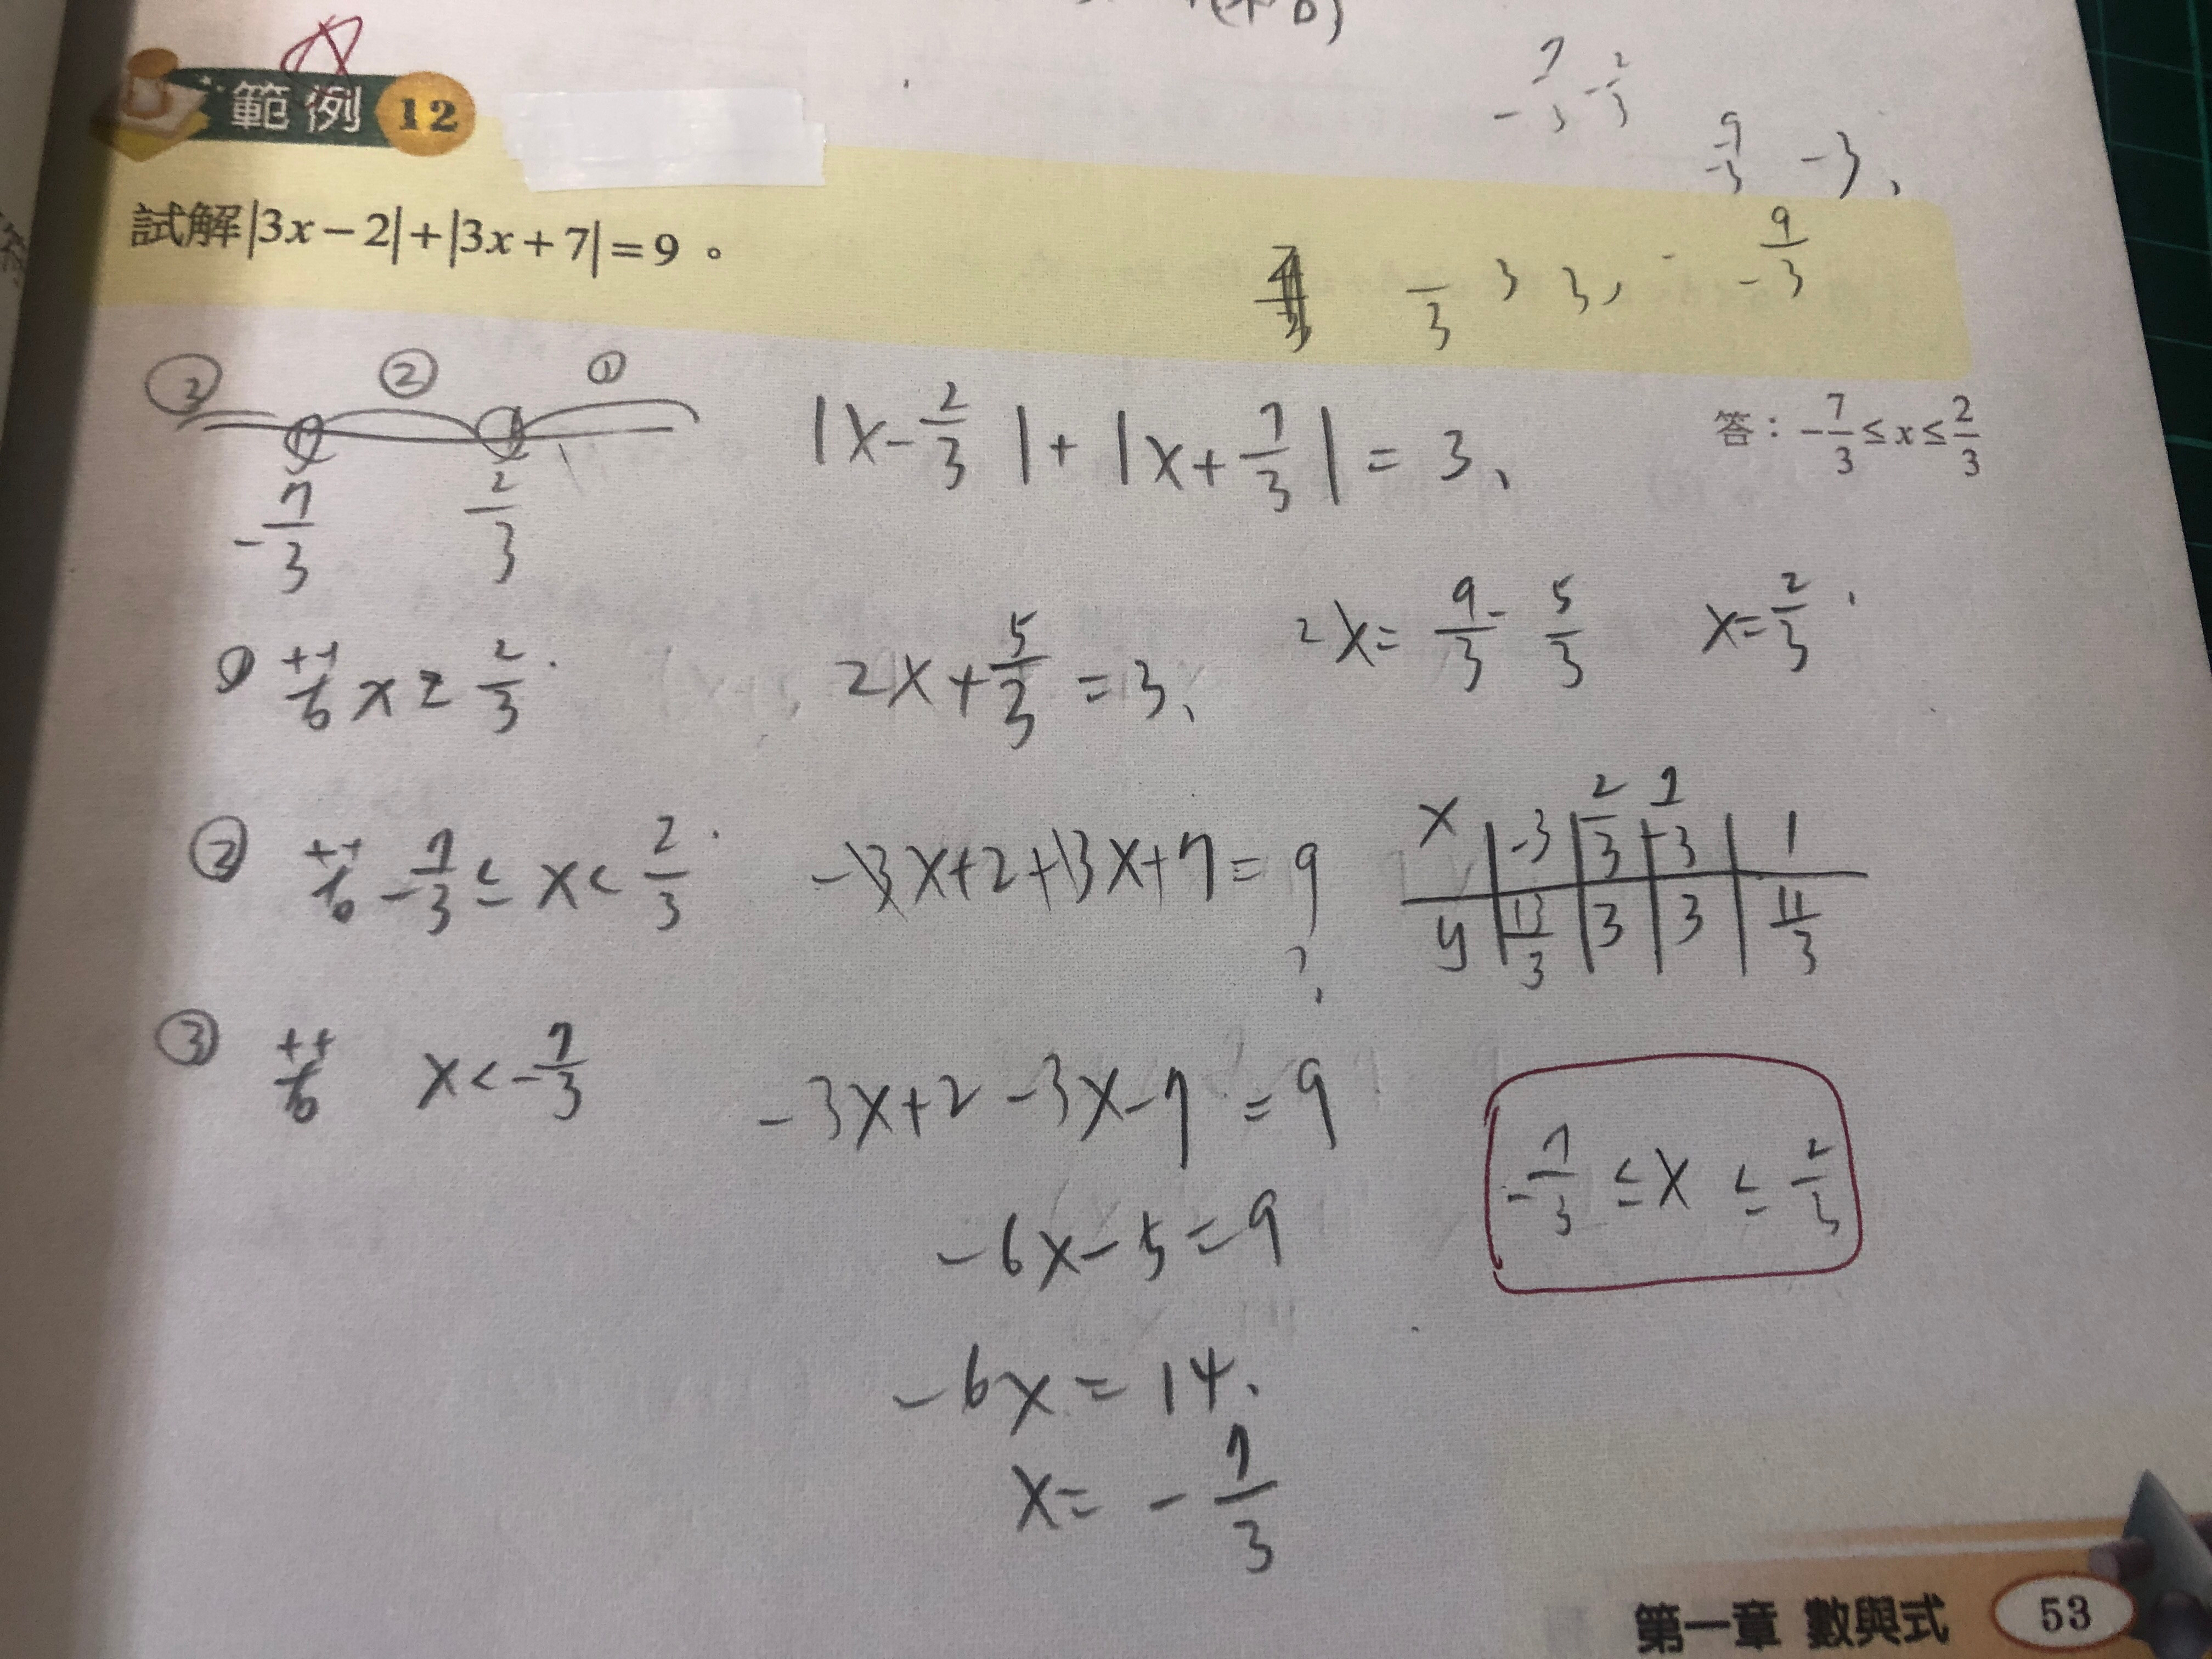 範例 12
-7/3 -2/3
-9/-3 -3、
試解|3x-2|+|3x+7|=9。
9/-3
③ ② ①
-7/3 2/3
|x-2/3|+|x+7/3|=3、
答：-7/3≤x≤2/3
① 若 x≥2/3. 2x+5/3=3、 2x=9/3-5/3 x=2/3.
② 若 -7/3≤x<2/3. -3x+2+3x+7=9
x | -3 | 2/3 | -7/3 | 1
y | 13/3 | 3 | 3 | 11/3
③ 若 x<-7/3 -3x+2-3x-7=9
-7/3≤x≤2/3
-6x-5=9
-6x=14、
x=-7/3
第一章 數與式 53